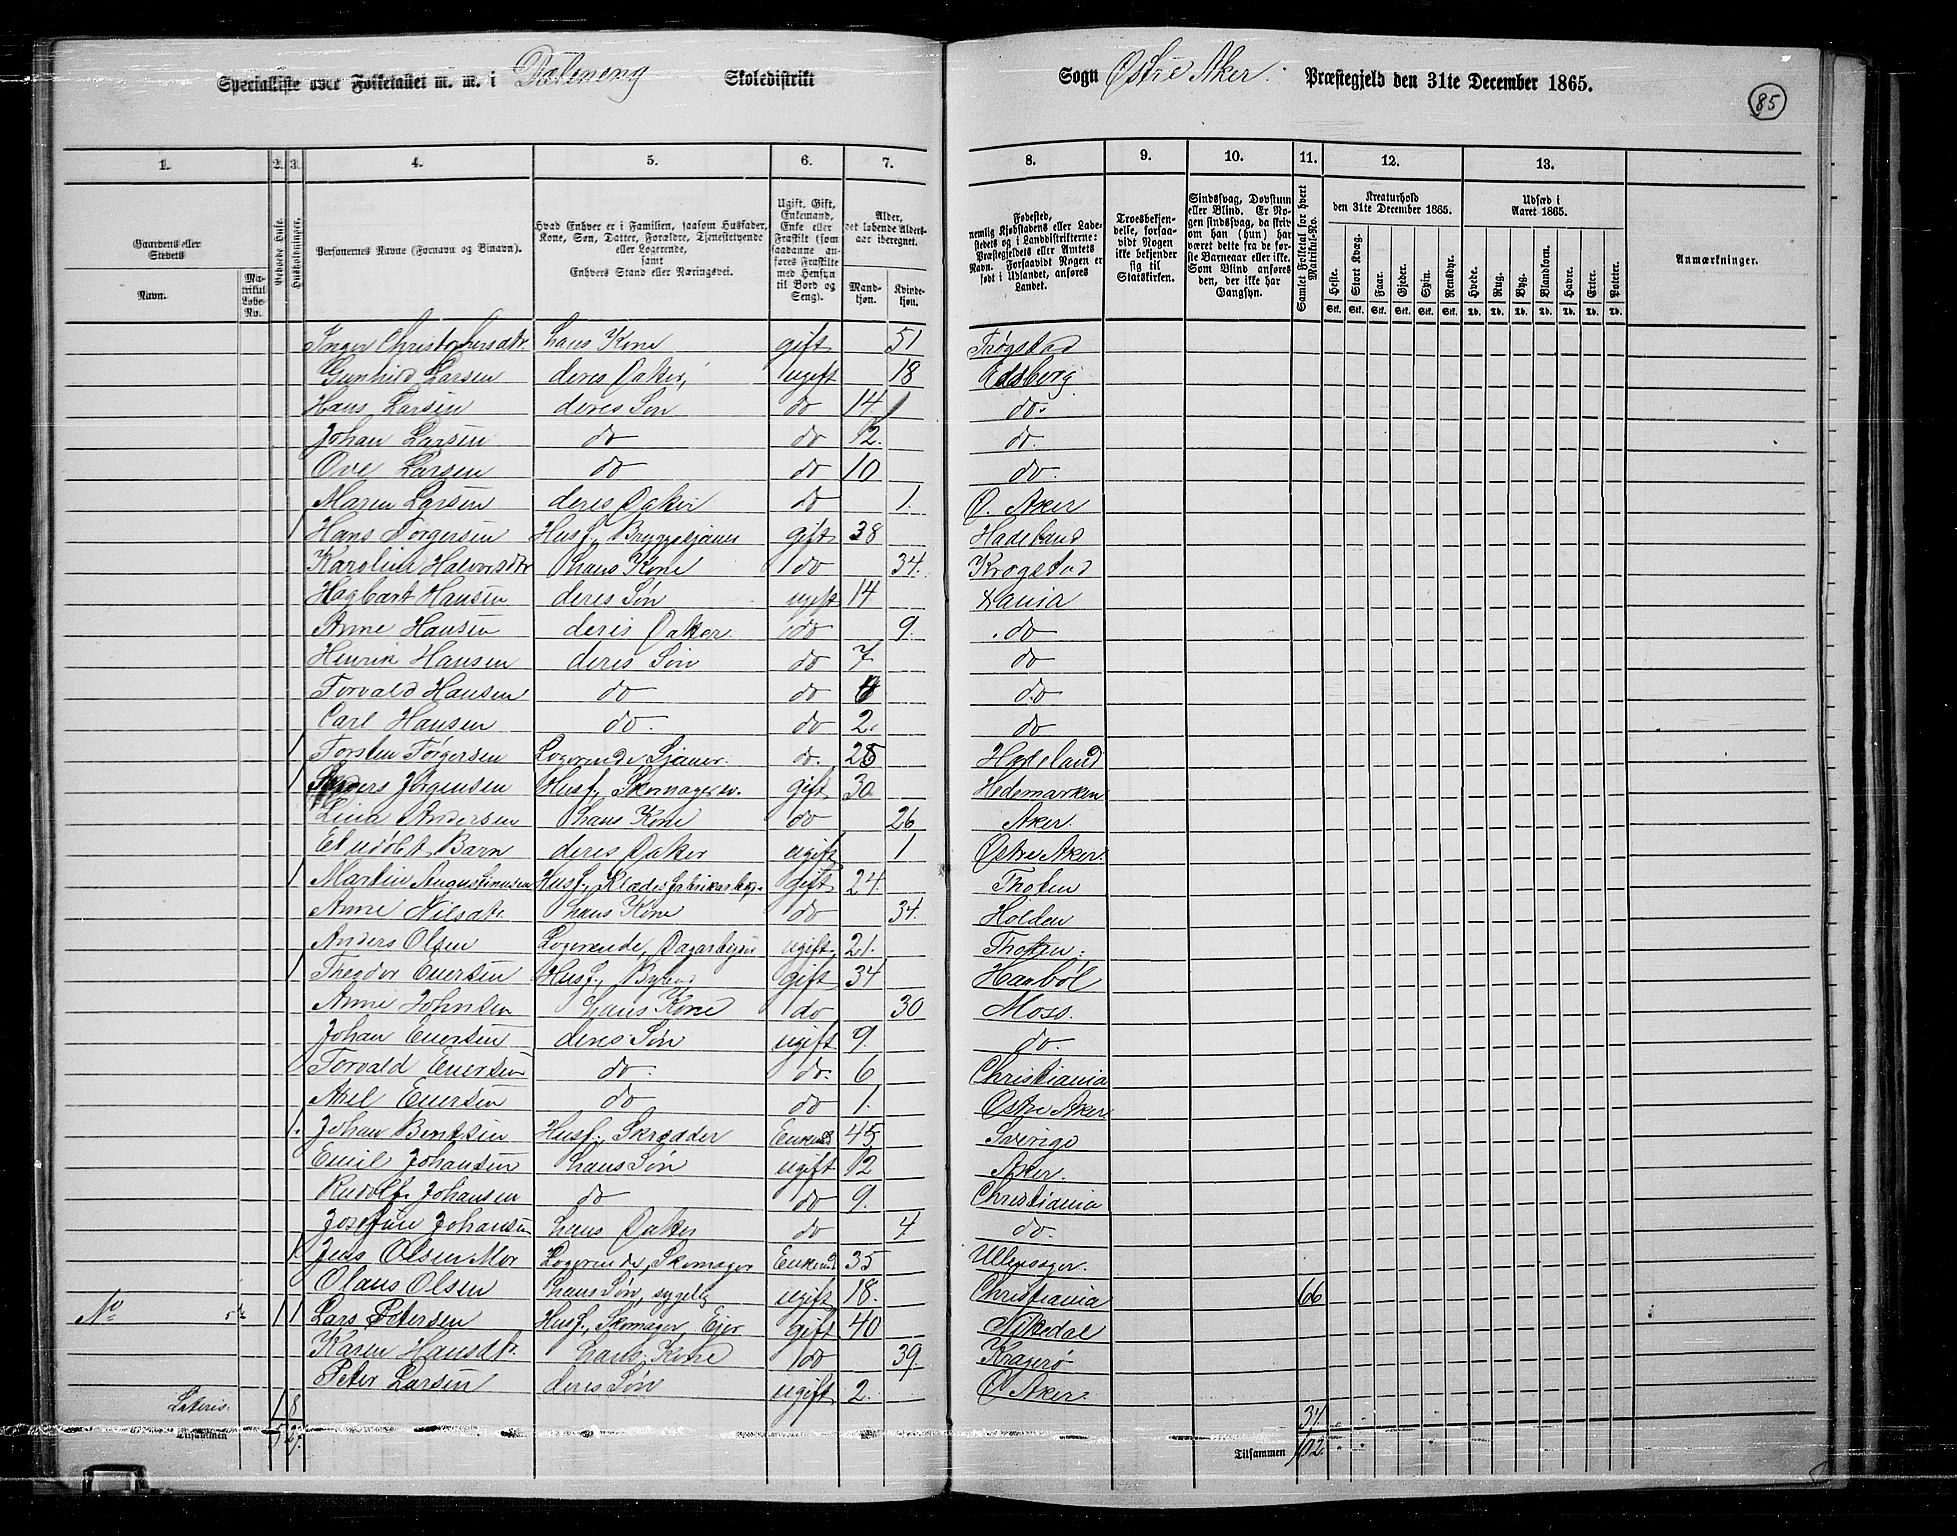 Specialliste over Folketallet m. m. i Dælineng Skoledistrikt Sogn Østre Aker. Præstegjeld den 31te December 1865.
85
1. 2. 3. 4. 5. 6. 7. 8. 9. 10. 11. 12. 13.
Gaardens eller Stedets
Navn.
Matrikul Løbe-No.
Beboede Huse.
Husholdninger.
Personernes Navne (Fornavn og Binavn).
Hvad Enhver er i Familien, saasom Husfader, Kone, Søn, Datter, Forældre, Tjenestetyende eller Logerende, samt Enhvers Stand eller Næringsvei.
Ugift, Gift, Enkemand, Enke eller Fraskilt (som saadanne anføres Fraskilte med Hensyn til Bord og Seng).
Alder, det løbende Aldersaar iberegnet.
Mandkjøn. Kvindekjøn.
Fødested, nemlig Kjøbstadens eller Ladestedets og i Landdistrikterne: Præstegjeldets eller Amtets Navn. Forsaavidt Nogen er født i Udlandet, anføres Landet.
Troesbekjendelse, forsaavidt Nogen ikke bekjender sig til Statskirken.
Sindssvag, Døvstum eller Blind. Er Nogen sindssvag, da skriv om han (hun) har været dette fra de første Barneaar eller ikke. Som Blind anføres den, der ikke har Gangsyn.
Samlet Folketal for hvert Matrikul-No.
Kreaturhold den 31te December 1865.
Heste. Stort Kvæg. Faar. Gjeder. Svin. Rensdyr.
Stk. Stk. Stk. Stk. Stk. Stk.
Udsæd i Aaret 1865.
Hvede. Rug. Byg. Blandkorn. Havre. Erter. Poteter.
Td. Td. Td. Td. Td. Td. Td.
Anmærkninger.
Inger Christophersdtr. hans Kone gift 51 Trøgstad
Gunhild Larsen deres Datter ugift 18 Edsberg
Hans Larsen deres Søn do 14 do.
Johan Larsen do do 12. do.
Ove Larsen do do 10 do.
Maren Larsen deres Datter do 1. Ø. Aker
1 Hans Torgersen Husf., Bryggesjauer gift 38 Hadeland
Karoline Halvorsdtr hans Kone do 34. Krogstad
Hagbart Hansen deres Søn ugift 14 Xania
Anne Hansen deres Datter. do 9. do
Henrik Hansen deres Søn do 7. do
Torvald Hansen do do do
Carl Hansen do. do 2. do
1 Torsten Torgersen Logerende, Sjauer. do. 25 Hadeland
1 Anders Jørgensen Husf., Skomagersv. gift 30 Hedemarken
Lina Andersen hans Kone do 26 Aker.
Et udøbt Barn deres Datter ugift 1 Østre Aker.
1 Martin Augustinusen Husf., Klædesfabrikarb. gift 24. Thoten
Anne Nilsdtr. hans Kone do 34. Holden
Anders Olsen Logerende, Dagarbeider ugift 21. Thoten.
1 Theodor Evensen Husf., gift 34 Haabøl
Anne Johnsen hans Kone do 30 Moss.
Johan Evensen deres Søn ugift 9. do.
Torvald Evensen do. do. 6 Christiania
Axel Evensen do do 1. Østre Aker
1. Johan Bentsen Husf., Skrædder Enkemd 45 Sverige
Emil Johansen hans Søn ugift 12 Aker.
Rudolf Johansen do do 9. Christiania
Josefine Johansen hans Datter do 4. do.
1. Jens Olsen Mor Logerende, Skomager Enkemd 35 Ullensager.
Olaus Olsen hans Søn, sygelig ugift 18. Christiania 66
No 5 1 1 Lars Petersen Husf., Skomager, Eier gift 40 Nikedal
Karen Hansdtr. hans Kone do 39. Kragerø
Peter Larsen deres Søn ugift 2. Ø Aker.
Lateris. 1 8 34
Tilsammen 5 27. Tilsammen 102